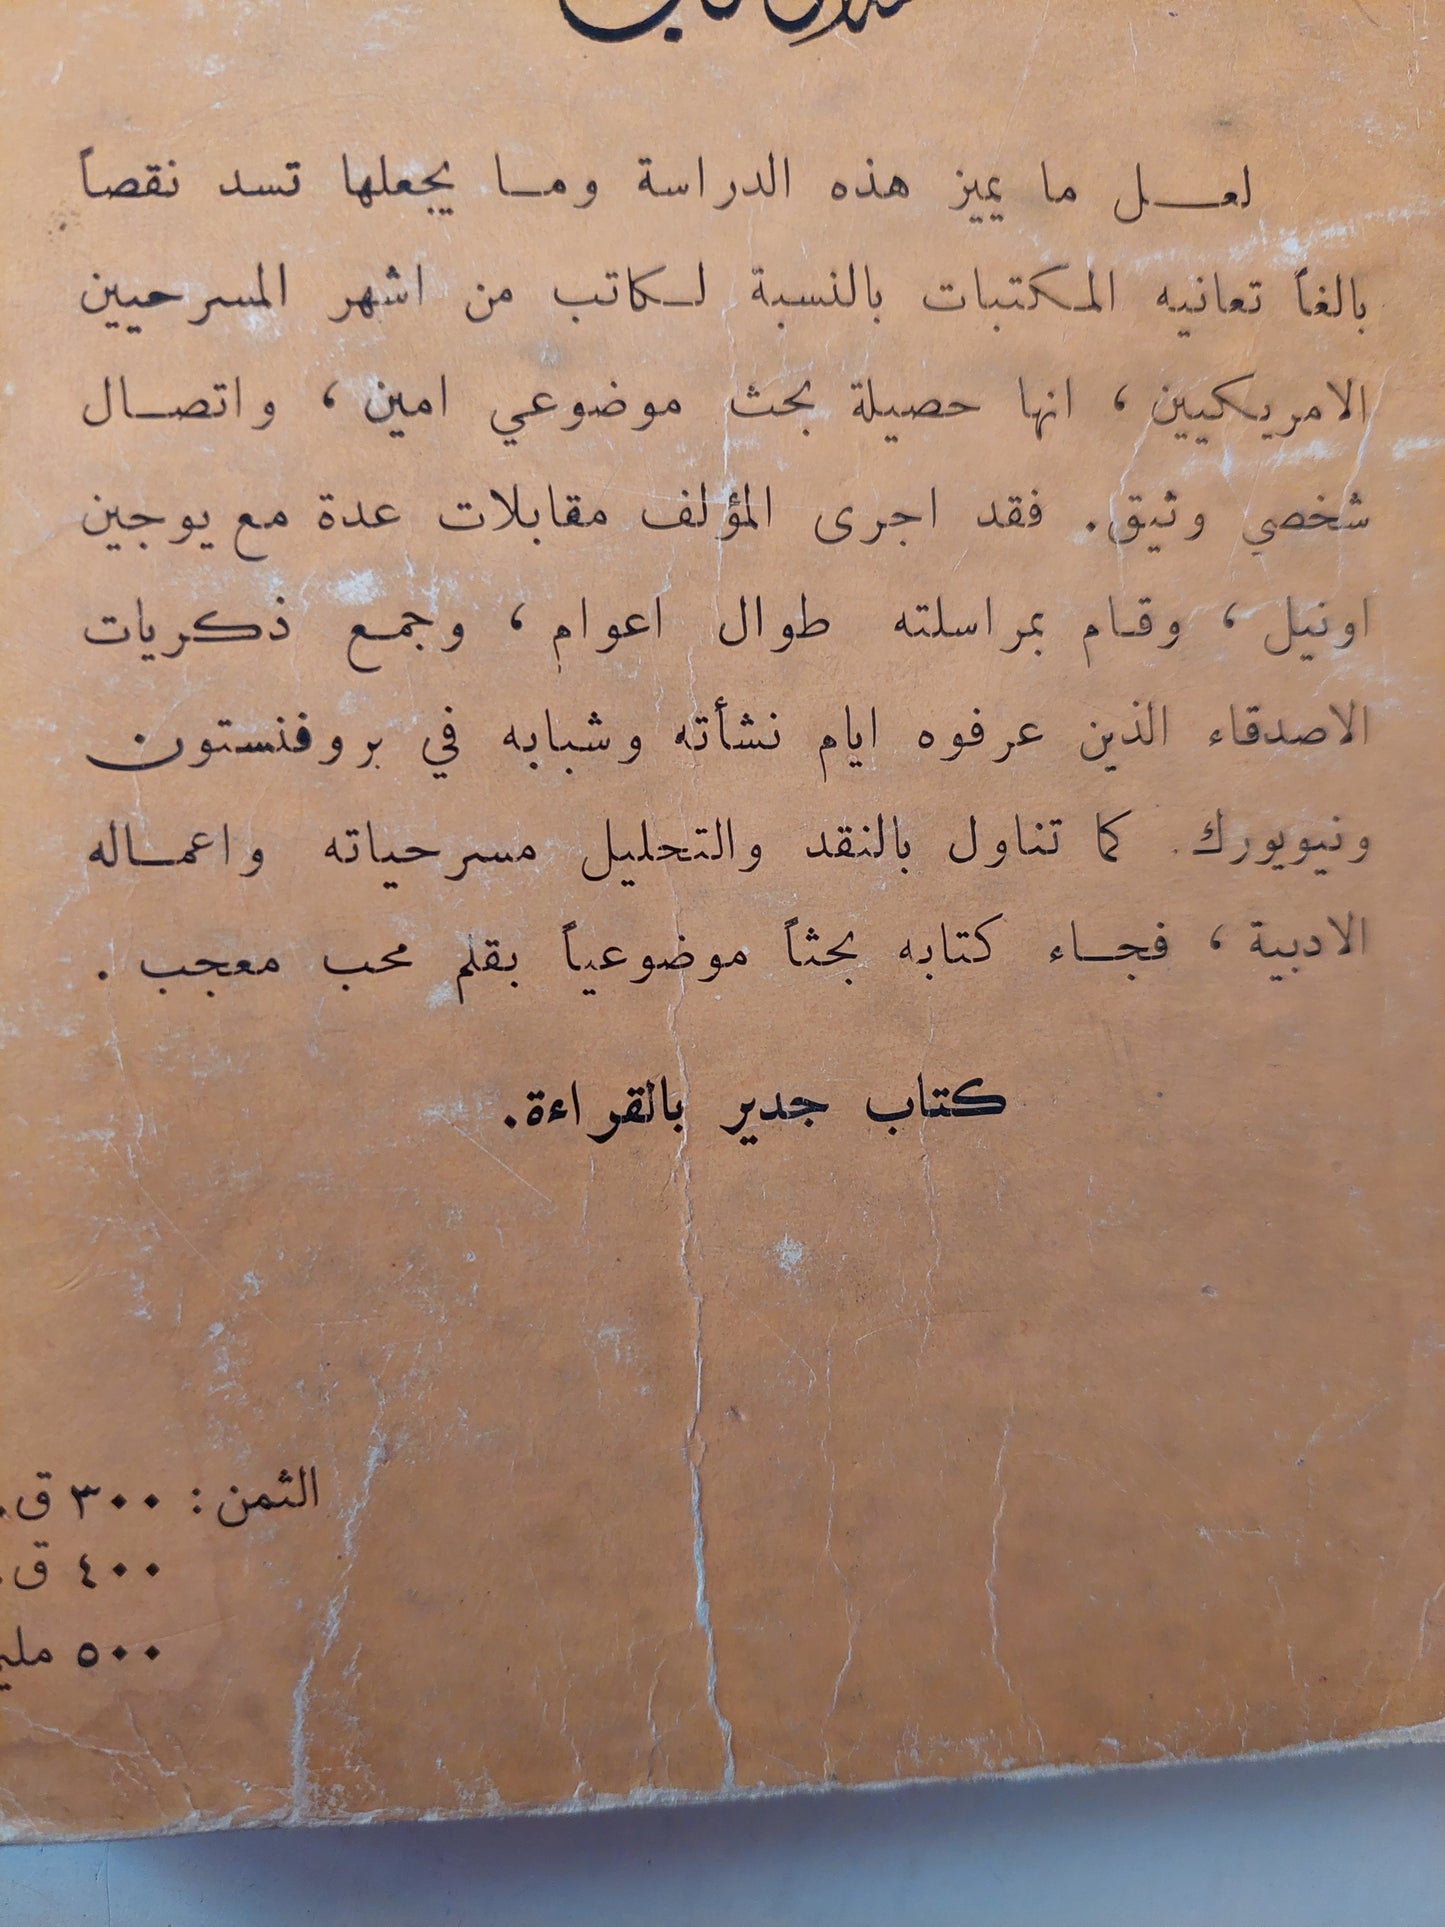 لعــل ما يميز هذه الدراسة ومــا يجعلها تسد نقصاً
بالغاً تعانيه المكتبات بالنسبة لــكاتب من اشهر المسرحيين
الامريكيين ، انها حصيلة بحث موضوعي امين ، واتصــال
شخصي وثيق. فقد اجرى المؤلف مقابلات عدة مع يوجين
اونيل ، وقــام بمراسلته طوال اعوام ، وجمــع ذكريات
الاصدقاء الذين عرفوه ايام نشأته وشبابه في بروفنستون
ونيويورك. كما تناول بالنقد والتحليل مسرحياته واعمــاله
الادبية ، فجــاء كتابه بحثاً موضوعياً بقلم محب معجب .
كتاب جدير بالقراءة.
الثمن : ٣٠٠ ق.
٤٠٠ ق.
٥٠٠